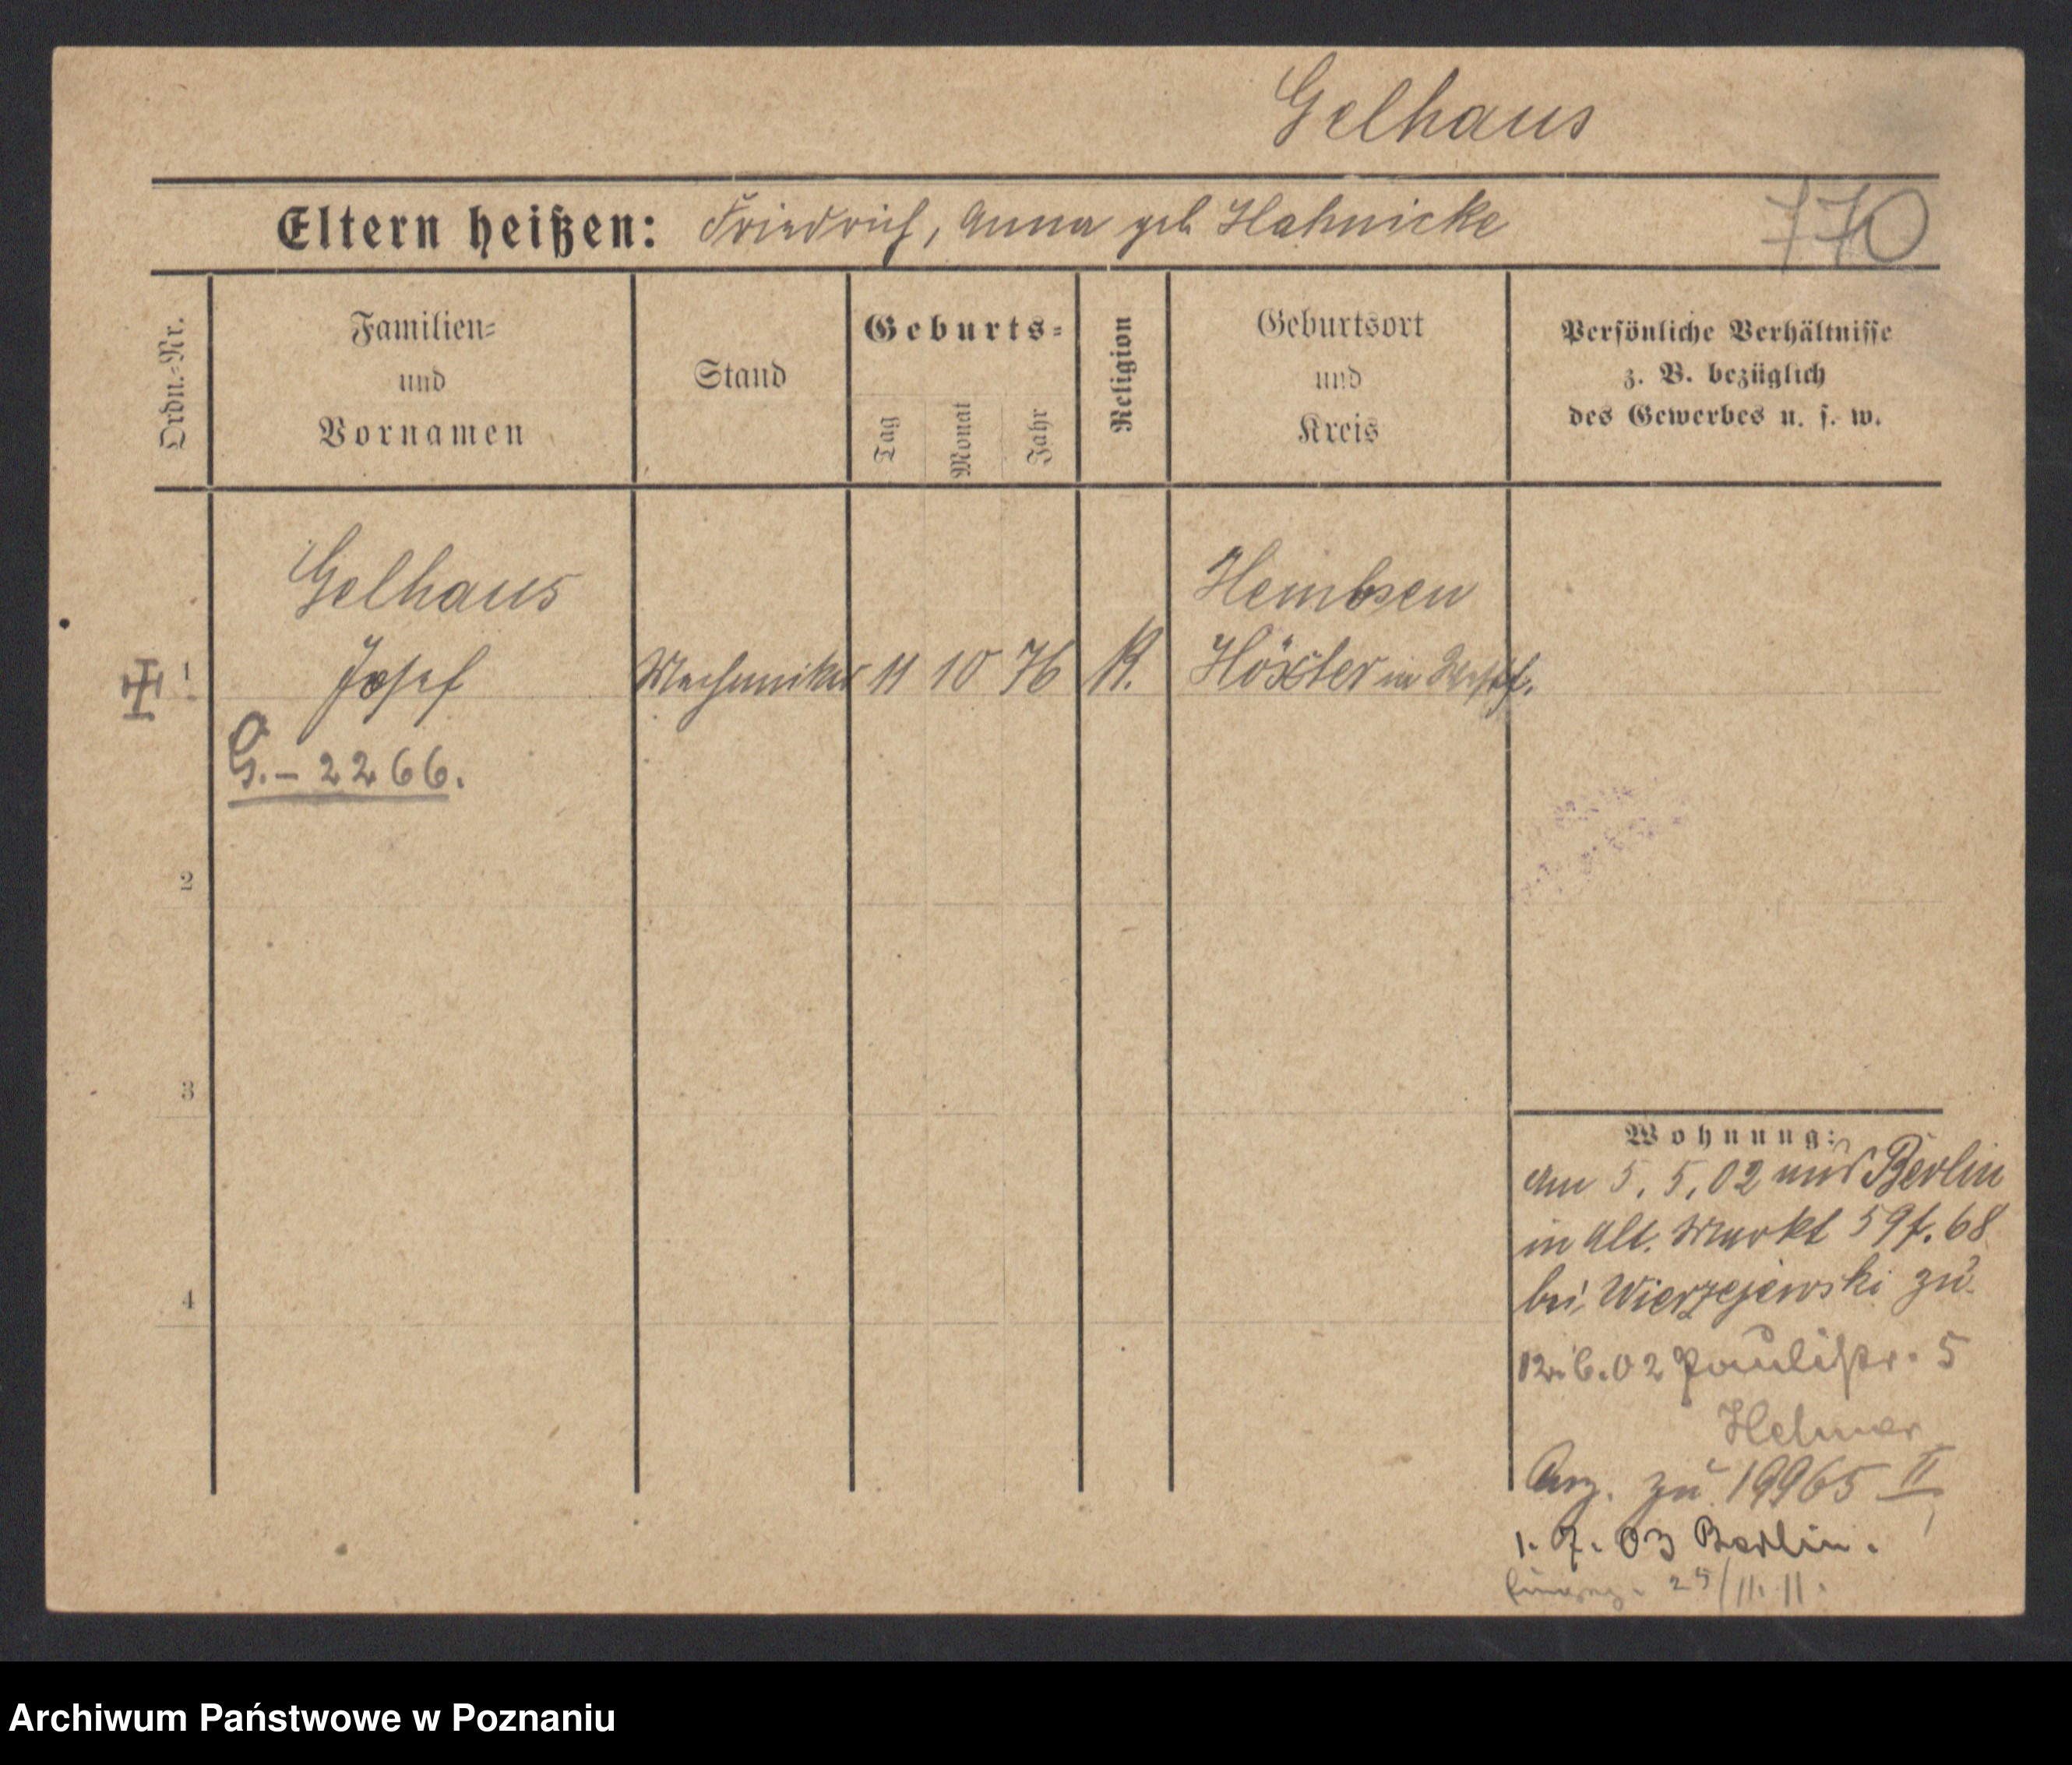 Gelhaus
Eltern heißen: Friedrich, Anna geb Hahnicke
770
Ordn.-Nr.
Familien-
und
Vornamen
Stand
Geburts-
Tag
Monat
Jahr
Religion
Geburtsort
und
Kreis
Persönliche Verhältnisse
z. B. bezüglich
des Gewerbes u. s. w.
Gelhaus
Hembsen
1
Josef
Mechaniker 11 10 76 K. Höxter in Westf.
G.- 2266.
2
3
4
Wohnung:
am 5. 5. 02 aus Berlin
in Alt. Markt 59 f. 68
bei Wierzejewski zu
12. 6. 02 Paulistr. 5
Helmer
Anz. zu 19965 II
1. 7. 03 Berlin.
25/11. 11.
Archiwum Państwowe w Poznaniu